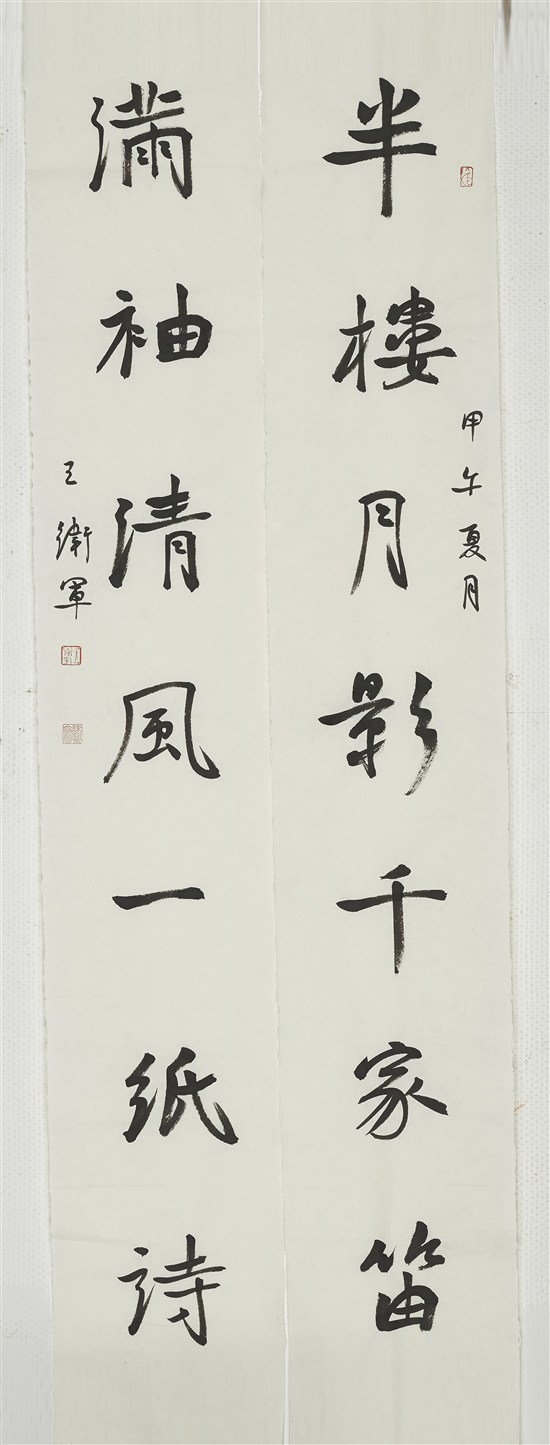 半樓月影千家笛
甲午夏月
滿袖清風一紙詩
王衛軍